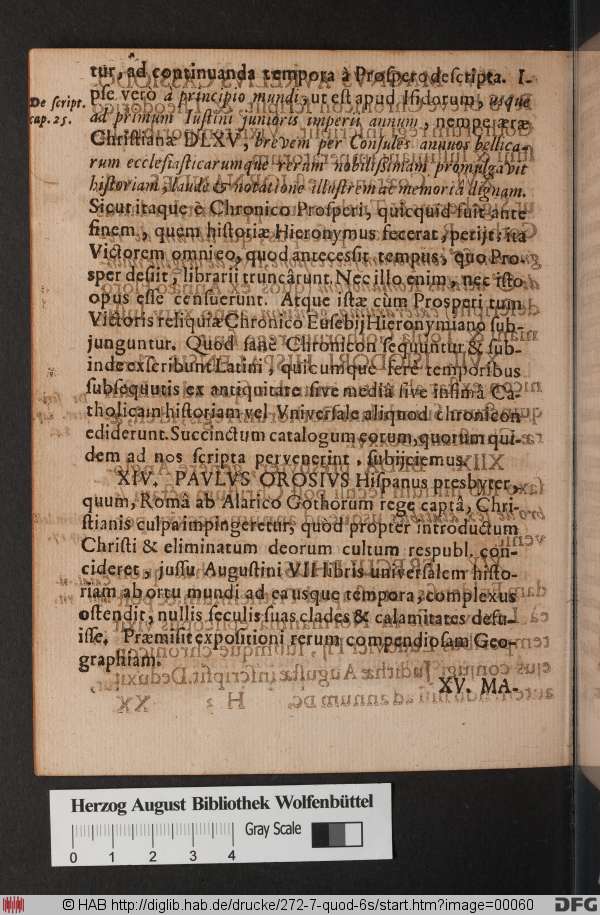 tur, ad continuanda tempora à Prospero descripta. I-
De script. cap. 25.
pse vero à principio mundi, ut est apud Isidorum, usque
ad primum Iustini junioris imperii annum, nempe æræ
Christianæ DLXV, brevem per Consules annuos bellica-
rum ecclesiasticarumque rerum nobilissimam promulgavit
historiam, laude & notatione illustrem ac memoriâ dignam.
Sicut itaque è Chronico Prosperi, quicquid fuit ante
finem, quem historiæ Hieronymus fecerat, periit: ita
Victorem omni eo, quod antecessit tempus, quo Pro-
sper desiit, librarii truncârunt. Nec illo enim, nec isto
opus esse censuerunt. Atque istæ cùm Prosperi tum
Victoris reliquiæ Chronico Eusebij Hieronymiano sub-
junguntur. Quod sane Chronicon sequuntur & sub-
inde exscribunt Latini, quicumque fere temporibus
subsequutis ex antiquitate sive mediâ sive infimâ Ca-
tholicam historiam vel Vniversale aliquod chronicon
ediderunt. Succinctum catalogum eorum, quorum qui-
dem ad nos scripta pervenerint, subijciemus.
XIV. PAVLVS OROSIVS Hispanus presbyter,
quum, Româ ab Alarico Gothorum rege captâ, Chri-
stianis culpa impingeretur, quod propter introductum
Christi & eliminatum deorum cultum respubl. con-
cideret, jussu Augustini VII libris universalem histo-
riam ab ortu mundi ad ea usque tempora, complexus
ostendit, nullis seculis suas clades & calamitates defu-
isse. Præmisit expositioni rerum compendiosam Geo-
graphiam.
XV. MA-
Herzog August Bibliothek Wolfenbüttel
Gray Scale
0 1 2 3 4
© HAB http://diglib.hab.de/drucke/272-7-quod-6s/start.htm?image=00060
DFG